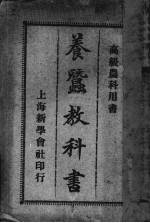 高級農科用書
養蠶教科書
上海新學會社印行